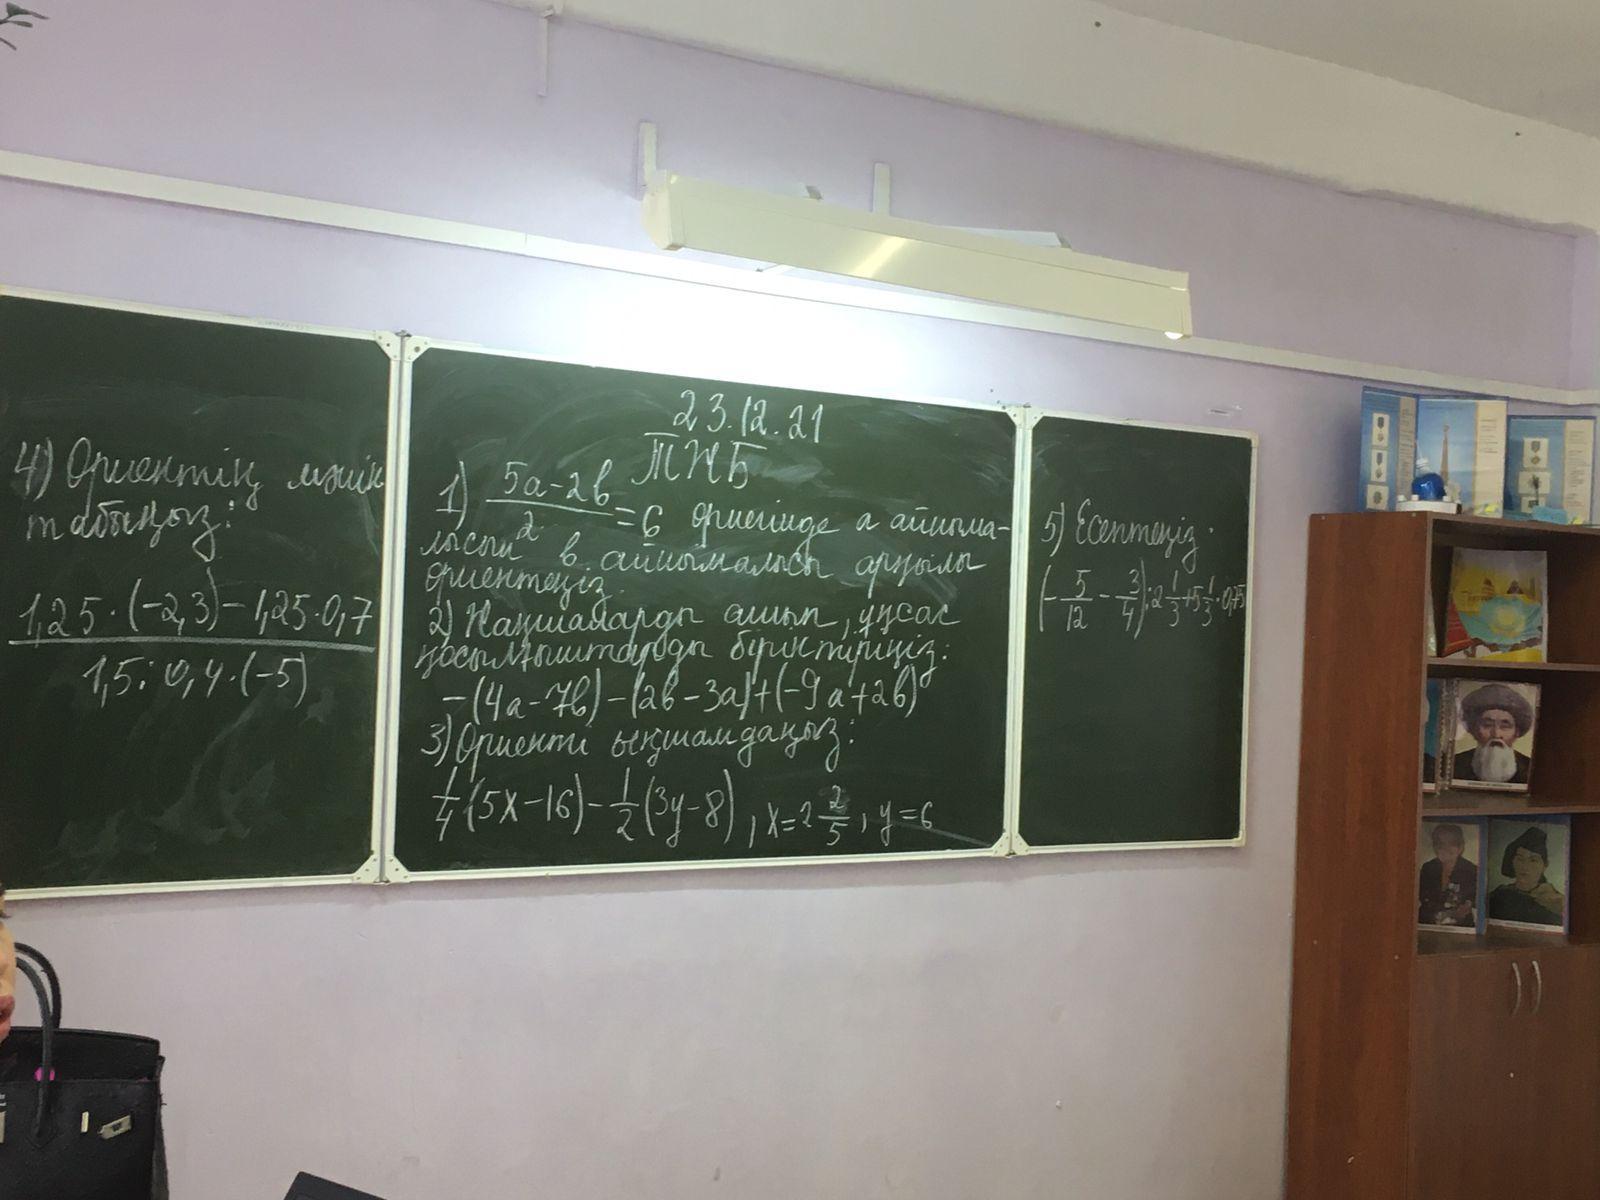 4) Өрнектің мәнін
табыңыз:
1,25·(-2,3)-1,25·0,7
1,5:0,4·(-5)
23.12.21
ТЖБ
1) 5a-2b
2
=6 өрнегінде a айныма-
лысын b айнымалысы арқылы
өрнектеңіз.
2) Жақшаларды ашып, ұқсас
қосылғыштарды біріктіріңіз:
-(4a-7b)-(2b-3a)+(-9a+2b)
3) Өрнекті ықшамдаңыз:
1/4(5x-16)-1/2(3y-8), x=2 2/5, y=6
5) Есептеңіз:
(-5/12-3/4):2 1/3+5 1/3·0,75